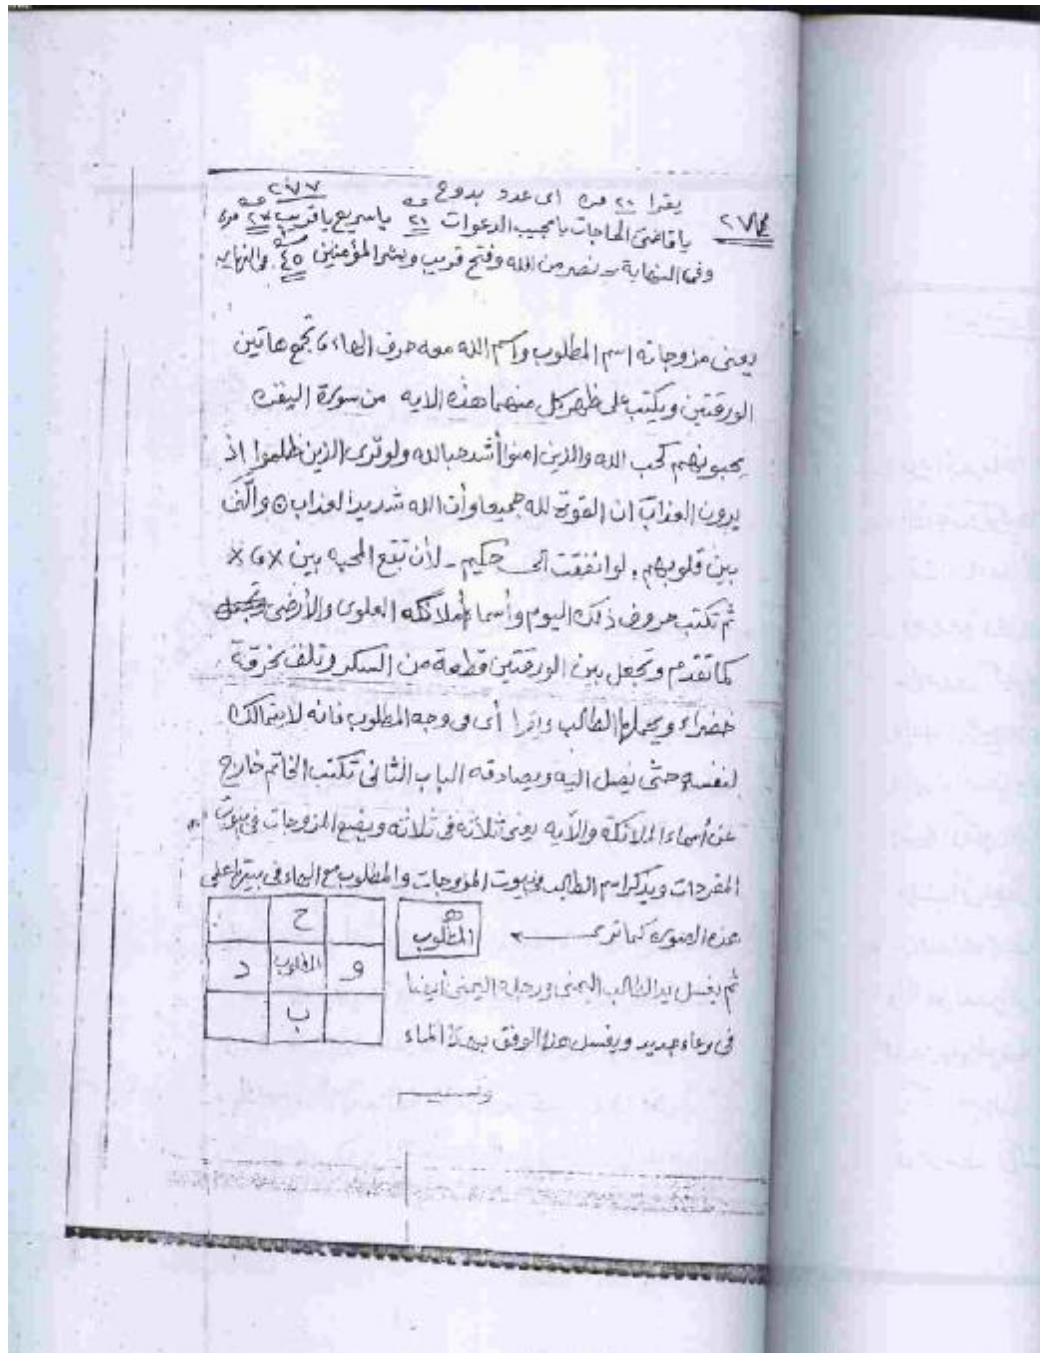 ٢٧٧
يقرا ٢٠ مره اى عدد بدوح
يا قاضى الحاجات يا مجيب الدعوات ٢٠ ياسريع ياقريب ٢٧ مره
وفى النهاية نصر من الله وفتح قريب وبشر المؤمنين ٤٥
يعنى مزوجاته اسم المطلوب واسم الله معه حرف الهاء تجمع هاتين
الورقتين ويكتب على ظهر كل منهما هذه الايه من سورة البقره
يحبونهم كحب الله والذين امنوا أشد حبا لله ولو ترى الذين ظلموا اذ
يرون العذاب ان القوة لله جميعا وأن الله شديد العذاب والف
بين قلوبهم لو انفقت الى حكيم - لأن تقع المحبه بين × و ×
ثم تكتب حروف ذلك اليوم وأسماء أملاكه العلوى والأرضى
كما تقدم وتجعل بين الورقتين قطعة من السكر وتلف بخرقة
خضراء ويحملها الطالب أى فى وجه المطلوب فانه لا يتمالك
لنفسه حتى يصل اليه ويصادقه الباب الثانى تكتب الخاتم خارج
عن أسماء الملائكة والآيه يعنى ثلاثه فى ثلاثه ويضع المزوجات فى بيوت
المفردات ويذكر اسم الطالب فى بيوت المزوجات والمطلوب مع الهاء فى بيتها على
هذه الصوره كما ترى
هـ
المطلوب
ح
و المطلوب د
ب
ثم يغسل يد الطالب اليمنى ورجله اليمنى أيضا
فى وعاء جديد ويغسل هذا الوفق بهذا الماء